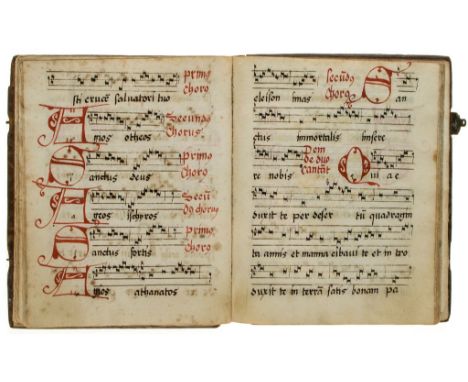 primo
choro
sti crucē salvatori tuo
Secundo
chorus
Agios otheos
primo
choro
Sanctus deus
Secū
dq chorus
Ageos ischyros
primo
choro
Sanctus fortis
Agios athanatos
secūdo
choro
eleison imas San
ctus immortalis misere
Dem
de duo
cantant
re nobis Quia e
duxit te per deser tū quadragin
ta annis et manna cibavit te et in tro
duxit te in terrā satis bonam pa